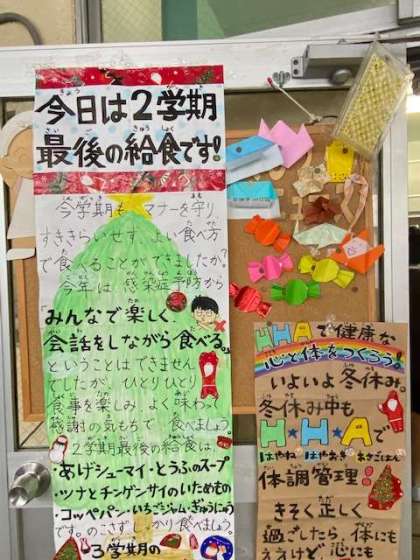 今日は2学期
最後の給食です!
今学期も、マナーを守り、
すききらいせず、よい食べ方
で食べることができましたか?
今年は、感染症予防から
「みんなで楽しく、
会話をしながら食べる。」
ということはできません
でしたが、ひとりひとり
食事を楽しみ、よく味わって
感謝の気もちで食べましょう。
2学期最後の給食は、
・あげシューマイ・とうふのスープ
・ツナとチンゲンサイのいためもの
・コッペパン・いちごジャム・ぎゅうにゅう
です。のこさずしっかり食べましょう。
3学期の
HHAで健康な
心と体をつくろう!
いよいよ冬休み。
冬休み中も
H★H★Aで
はやね はやおき あさごはん
体調管理!
きそく正しく
過ごしたら、体にも
ええけど、心にも